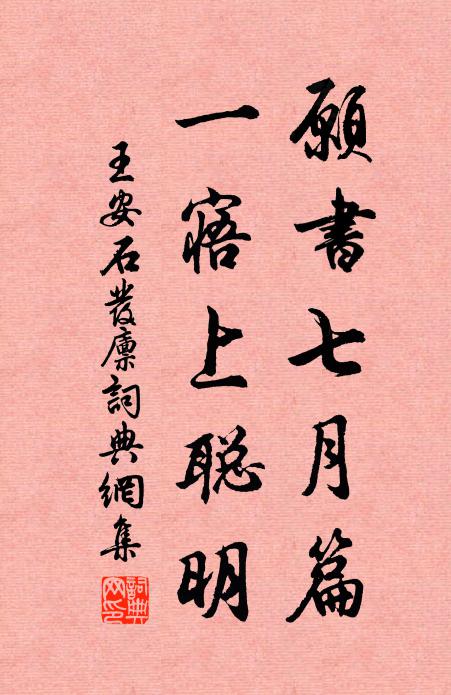 願書七月篇
一寤上聪明
王安石發廩詞典網集
詞典网印